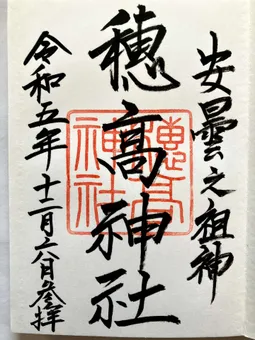 安曇之祖神
穗髙神社
穗高神社
令和五年十二月 日参拝